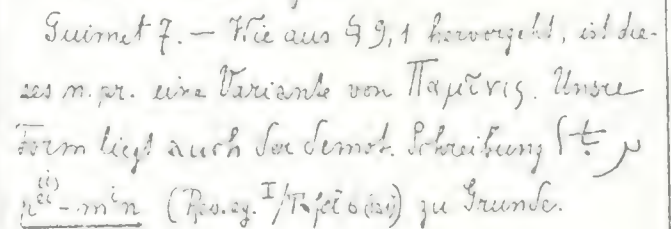 Guimet 7. — Wie aus § 9,1 hervorgeht, ist die-
ses n.pr. eine Variante von Παμῖνις. Unsre
Form liegt auch der demot. Schreibung
-mⁱn (Rev. eg. I/) zu Grunde.